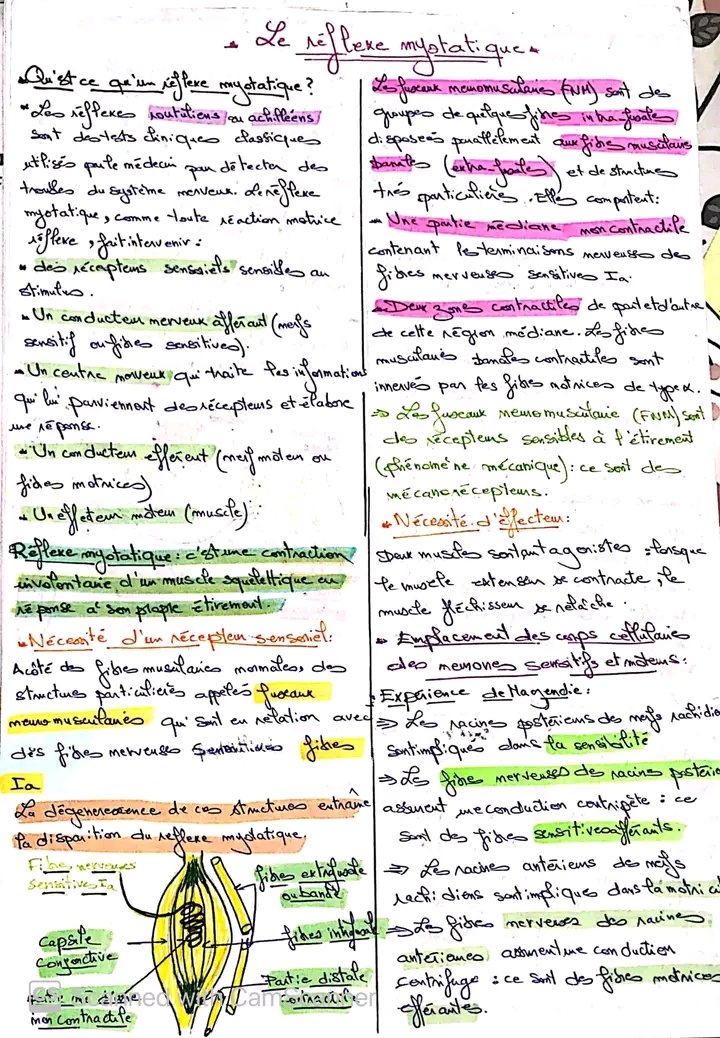 Le réflexe myotatique
Qu'est ce qu'un réflexe myotatique ?
Les réflexes routuliens ou achilléens
sont des tests cliniques classiques
utilisés par le médecin pour détecter des
troubles du système nerveux. Le réflexe
myotatique, comme toute réaction motrice
réflexe, fait intervenir :
des récepteurs sensoriels sensibles au
stimulus.
Un conducteur nerveux afférant (nerfs
sensitif ou fibres sensitives).
Un centre nerveux qui traite les informations
qui lui parviennent des récepteurs et élabore
une réponse.
Un conducteur efférent (nerf moteur ou
fibres motrices)
Un effeteur moteur (muscle)
Réflexe myotatique : c'est une contraction
involontaire d'un muscle squelettique en
réponse à son propre étirement.
Nécessité d'un récepteur sensoriel :
A côté des fibres musculaires normales, des
structures particulières appelés fuseaux
neuromusculaires qui sont en relation avec
des fibres nerveuses fibres
Ia
La dégénérescence de ces structures entraîne
la disparition du reflexe myotatique.
Fibre nerveuses
sensitive Ia
Capsule
conjonctive
Partie médiane
non contractile
fibres extrafusale
ou banal
fibres intrafusal
Partie distale
contractile
Les fuseaux neuromusculaires (FNM) sont des
groupes de quelques fibres intrafusales
disposées parallèlement aux fibres musculaires
banales (extra-fusales) et de structure
très particulière. Elles comportent :
Une partie médiane non contractile
contenant les terminaisons nerveuses des
fibres nerveuses sensitives Ia.
Deux zones contractiles de part et d'autre
de cette région médiane. Les fibres
musculaires banales contractiles sont
innervés par les fibres motrices de type α.
⇒ Les fuseaux neuromusculaire (FNM) sont
des récepteurs sensibles à l'étirement
(phénomène mécanique) : ce sont des
mécanorécepteurs.
Nécessité d'effecteur :
Deux muscles sont antagonistes : lorsque
le muscle extenseur se contracte, le
muscle fléchisseur se relâche.
Emplacement des corps cellulaires
des neurones sensitifs et moteurs :
Expérience de Magendie :
⇒ Les racines postérieurs des nerfs rachidie
sont impliqués dans la sensibilité
⇒ Les fibres nerveuses des racines postérie
assurent une conduction centripète : ce
sont des fibres sensitives afférants.
⇒ Les racines antérieurs des nerfs
rachidiens sont impliques dans la motrici
⇒ Les fibres nerveuses des racines
antérieures assurent une conduction
centrifuge : ce sont des fibres motrices
efférantes.
CS Scanned with CamScanner